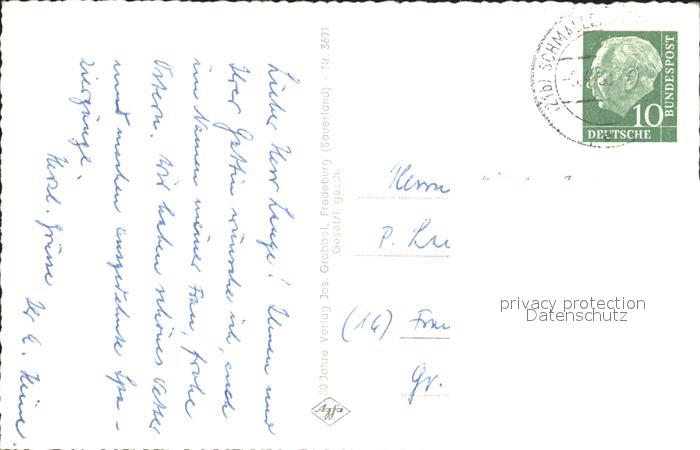 Lieber Herr Lange! Ihnen und
Ihrer Gattin wünsche ich, auch
im Namen meiner Frau, frohe
Ostern. Wir haben schönes Wetter
und machen ausgedehnte Spa-
ziergänge.
Herzl. Grüsse
Ihr
30 Jahre Verlag Jos. Grobbel, Fredeburg (Sauerland) - Nr. 3691
Gesetzl. gesch.
Agfa
(21b) SCHMALLE
10
DEUTSCHE
BUNDESPOST
Herrn
P.
(16)
Gr.
privacy protection
Datenschutz